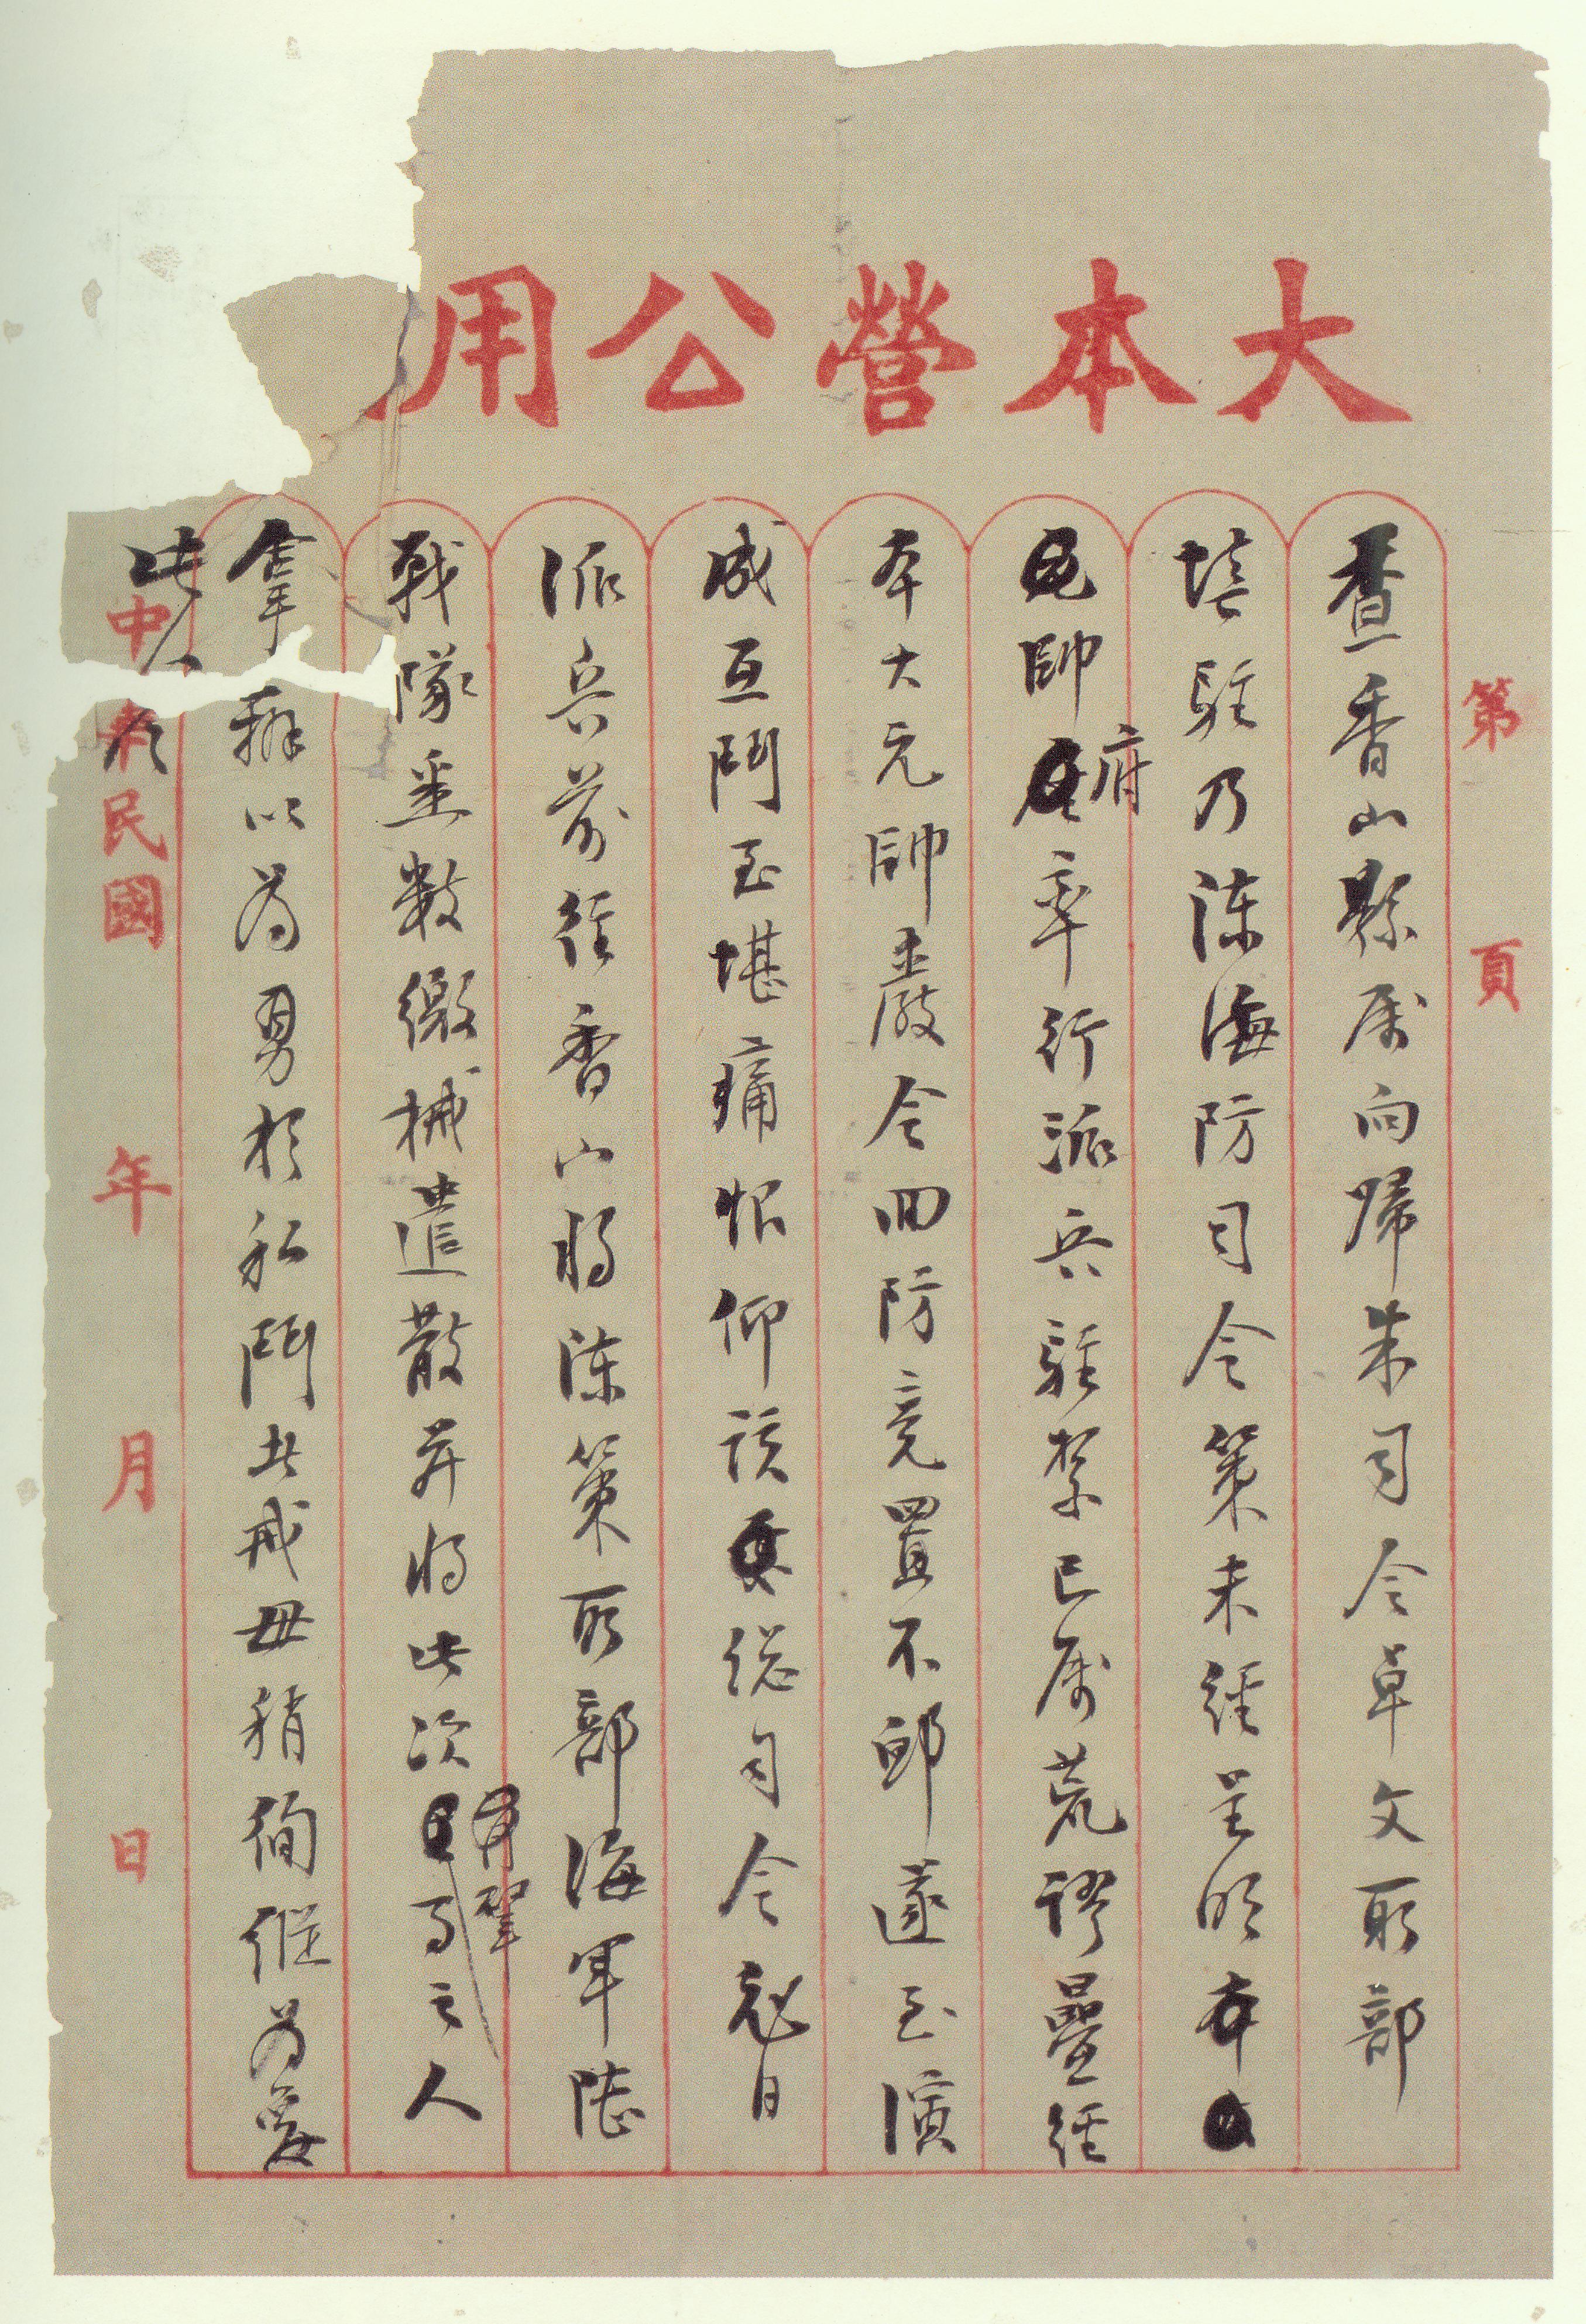 大本營公用
第 頁
查香山縣屬向歸朱司令卓文所部
填駐乃陳海防司令策未經呈明本
帥府率行派兵駐紮已屬荒謬疊經
本大元帥嚴令回防竟置不卹遂至演
成互鬥至堪痛恨仰該總司令尅日
派兵前往香山將陳策所部海軍陸
戰隊悉數繳械遣散并將此次有肇事之人
拿辦以為勇於私鬥者戒毋稍徇縱為要
此令
中華民國 年 月 日